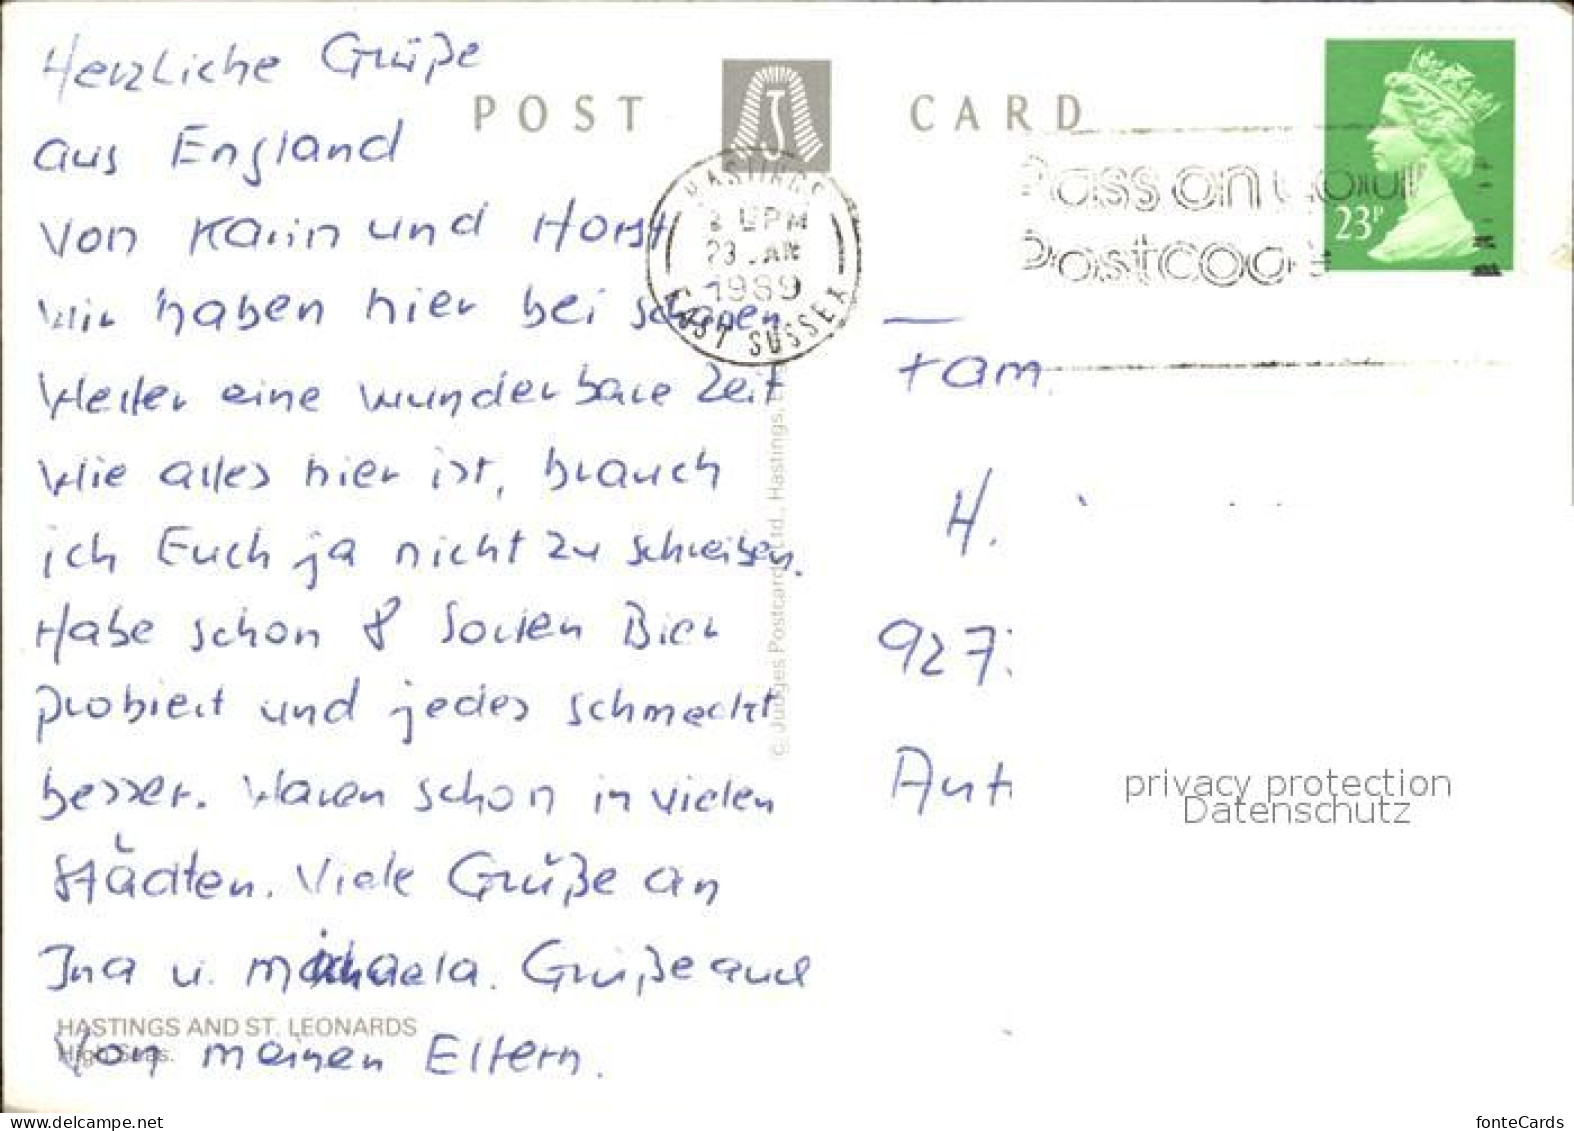 Herzliche Grüße
aus England
von Karin und Horst
Wir haben hier bei schönen
Wetter eine wunderbare Zeit
Wie alles hier ist, brauch
ich Euch ja nicht zu schreiben.
Habe schon 8 Sorten Bier
probiert und jedes schmeckt
besser. Waren schon in vielen
Städten. Viele Grüße an
Ina u. Michaela. Grüße auch
von meinen Eltern.
HASTINGS AND ST. LEONARDS
High Seas.
POST CARD
HASTINGS
PM
23 JAN
1989
EAST SUSSEX
Pass on your
Postcode
23P
© Judges Postcards Ltd., Hastings, E
Fam.
H.
927
Ant
privacy protection
Datenschutz
www.delcampe.net
fonteCards